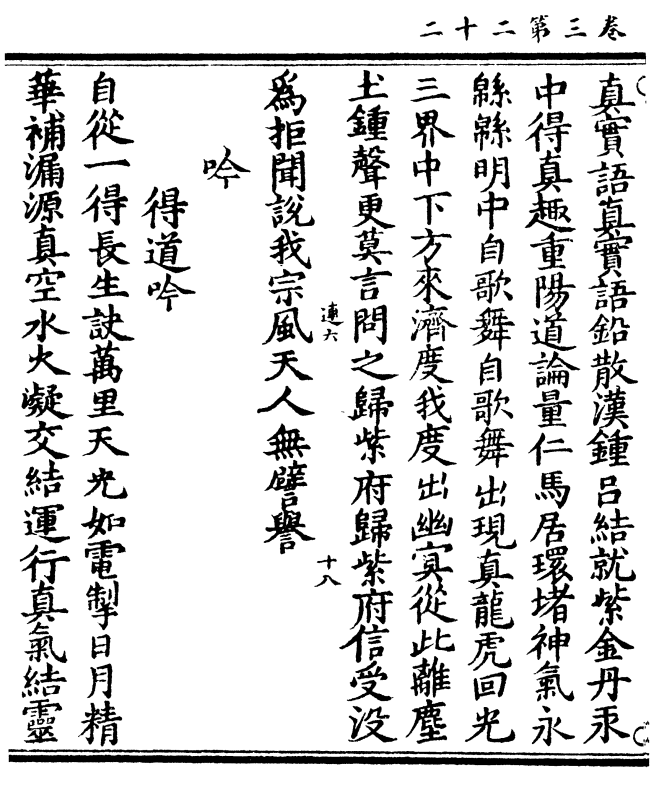 卷三第二十二
真實語真實語鉛散漢鍾吕結就紫金丹汞
中得真趣重陽道論量仁馬居環堵神氣永
緜緜明中自歌舞自歌舞出現真龍虎回光
三界中下方來濟度我度出幽冥從此離塵
圡鍾聲更莫言問之歸紫府歸紫府信受没
連六 十八
爲拒聞説我宗風天人無譬譽
吟
得道吟
自從一得長生訣萬里天光如電掣日月精
華補漏源真空水火凝交結運行真氣結靈